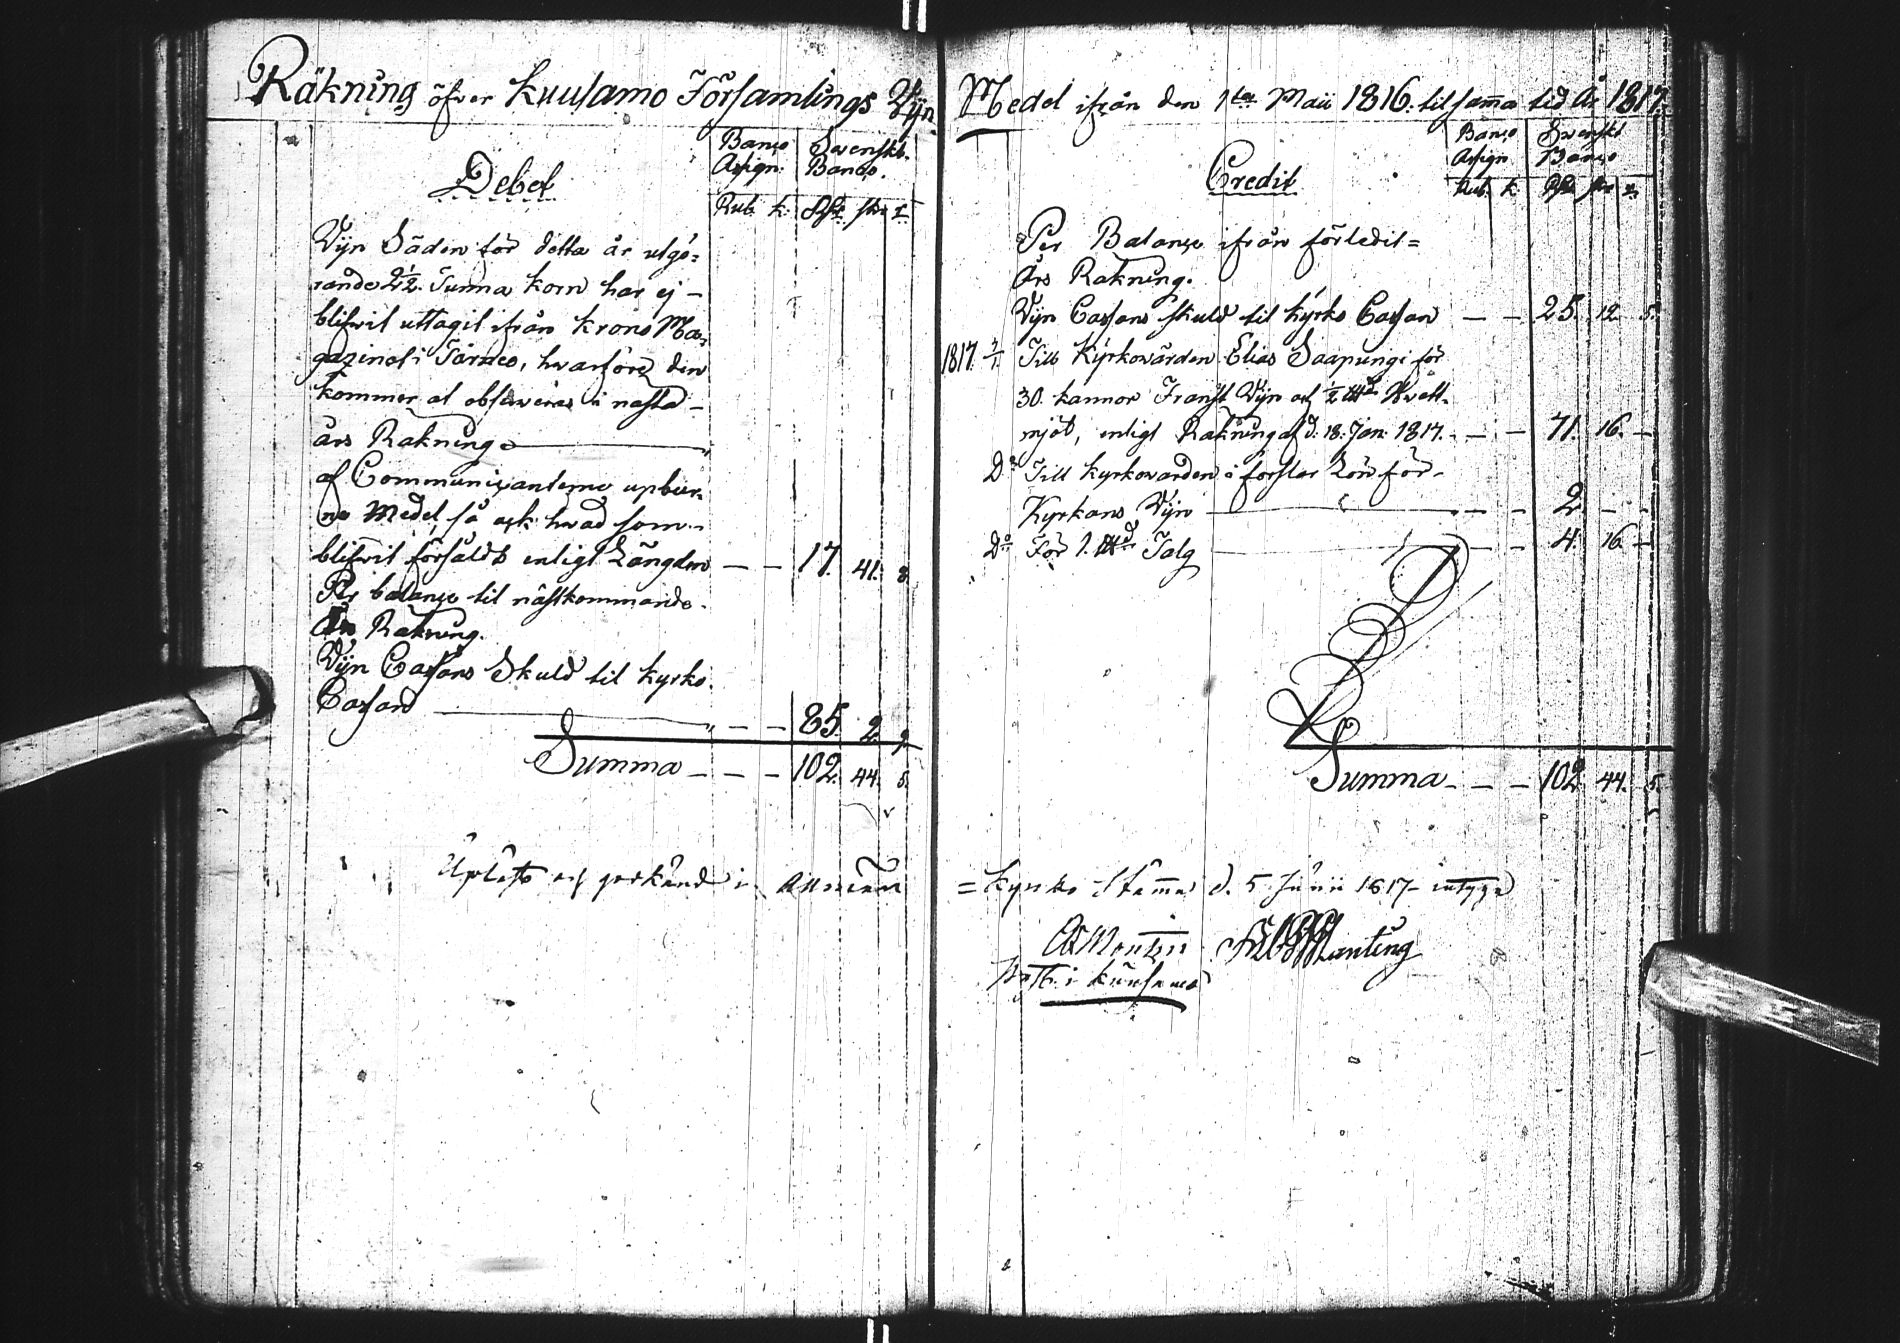 Räkning öfver Kuusamo Församlings Wijn
Debet
Banco Swenskt
Assign: Banco.
Rub. k. Rdr sk. r.
Wijn Säden för detta år utgö=
rande 2½ Tunna korn har ej
blifvit uttagit ifrån Krono Ma=
gazinet i Torneo, hvarföre den
kommer at observeras i nästa
års Räkning
af Communicanterne upbur=
na Medel, så ock hvad som
blifvit försåldt enligt Längden — — 17. 41. 8.
Per balance til nästkommande
Års Räkning.
Wijn Cassans Skuld til Kyrko
Cassan — — 85. 2. 9.
Summa — — — 102. 44. 5.
Upläst och godkänd i Allmän
Medel ifrån den 1sta Maii 1816. til sama tid År 1817.
Credit
Banco Swenskt
Assign Banco
Rub. k. Rdr sk. r.
Per Balance ifrån förledit=
Års Räkning.
Wijn Cassans skuld til Kyrko Cassan — — 25. 12. 5.
1817. Till Kyrkovärden Elias Saapungi för
30. kannor Franskt Wijn och ½ Hvett=
mjöl, enligt Räkning af d. 18. Jan. 1817. — — 71. 16. —
Do Till Kyrkovärden i forslor Lön för
Kyrkans Wijn — — 2. — —
Do För 1. Talg — — 4. 16. —
Summa — — — 102. 44. 5.
= Kyrko Stämma d. 5 Junii 1817 intyga
Planting
i Kuusamo